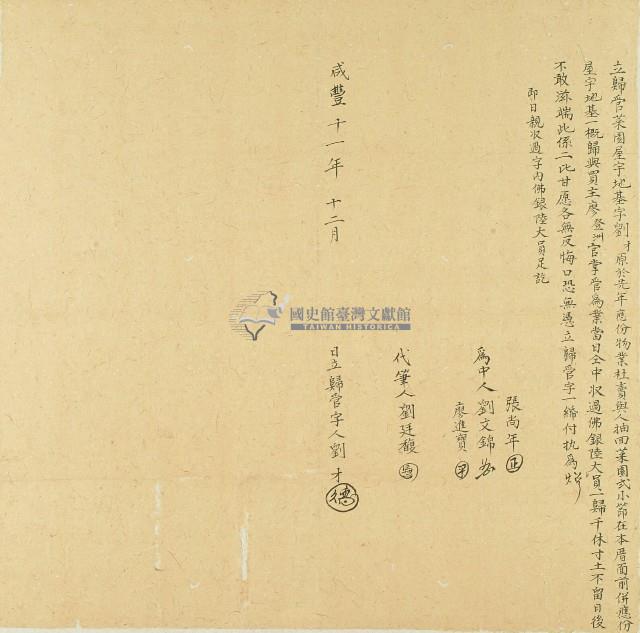 立歸管菜園屋宇地基字劉才原於先年應份物業杜賣與人抽回菜園弍小節在本厝面前併應份
屋宇地基一概歸與買主廖登洲官掌管為業當日仝中收過佛銀陸大員一歸千休寸土不留日後
不敢滋端此係二比甘愿各無反悔口恐無憑立歸管字一紙付执為炤
即日親收過字內佛銀陸大員足訖
張尚年
為中人劉文錦
廖進寶
代筆人劉廷馥
咸豐十一年十二月 日立歸管字人劉才
國史館臺灣文獻館
TAIWAN HISTORICA